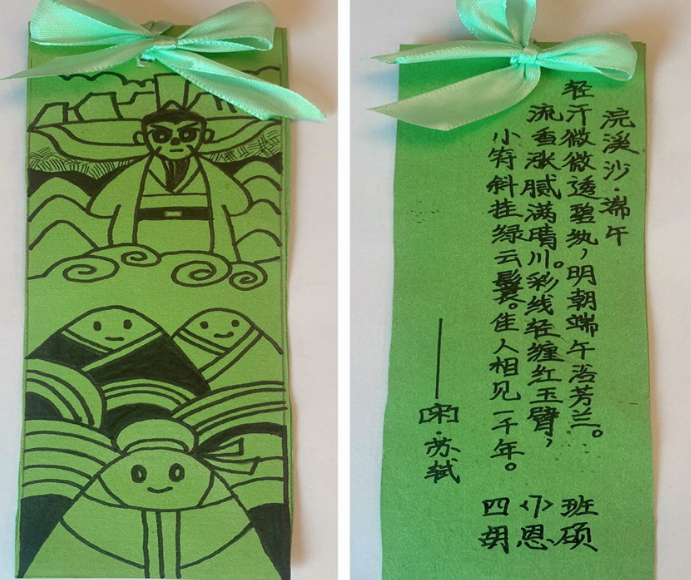 浣溪沙·端午
轻汗微微透碧纨，明朝端午浴芳兰。
流香涨腻满晴川。彩线轻缠红玉臂，
小符斜挂绿云鬟。佳人相见一千年。
——[宋]·苏轼
四<7>班
恩硕